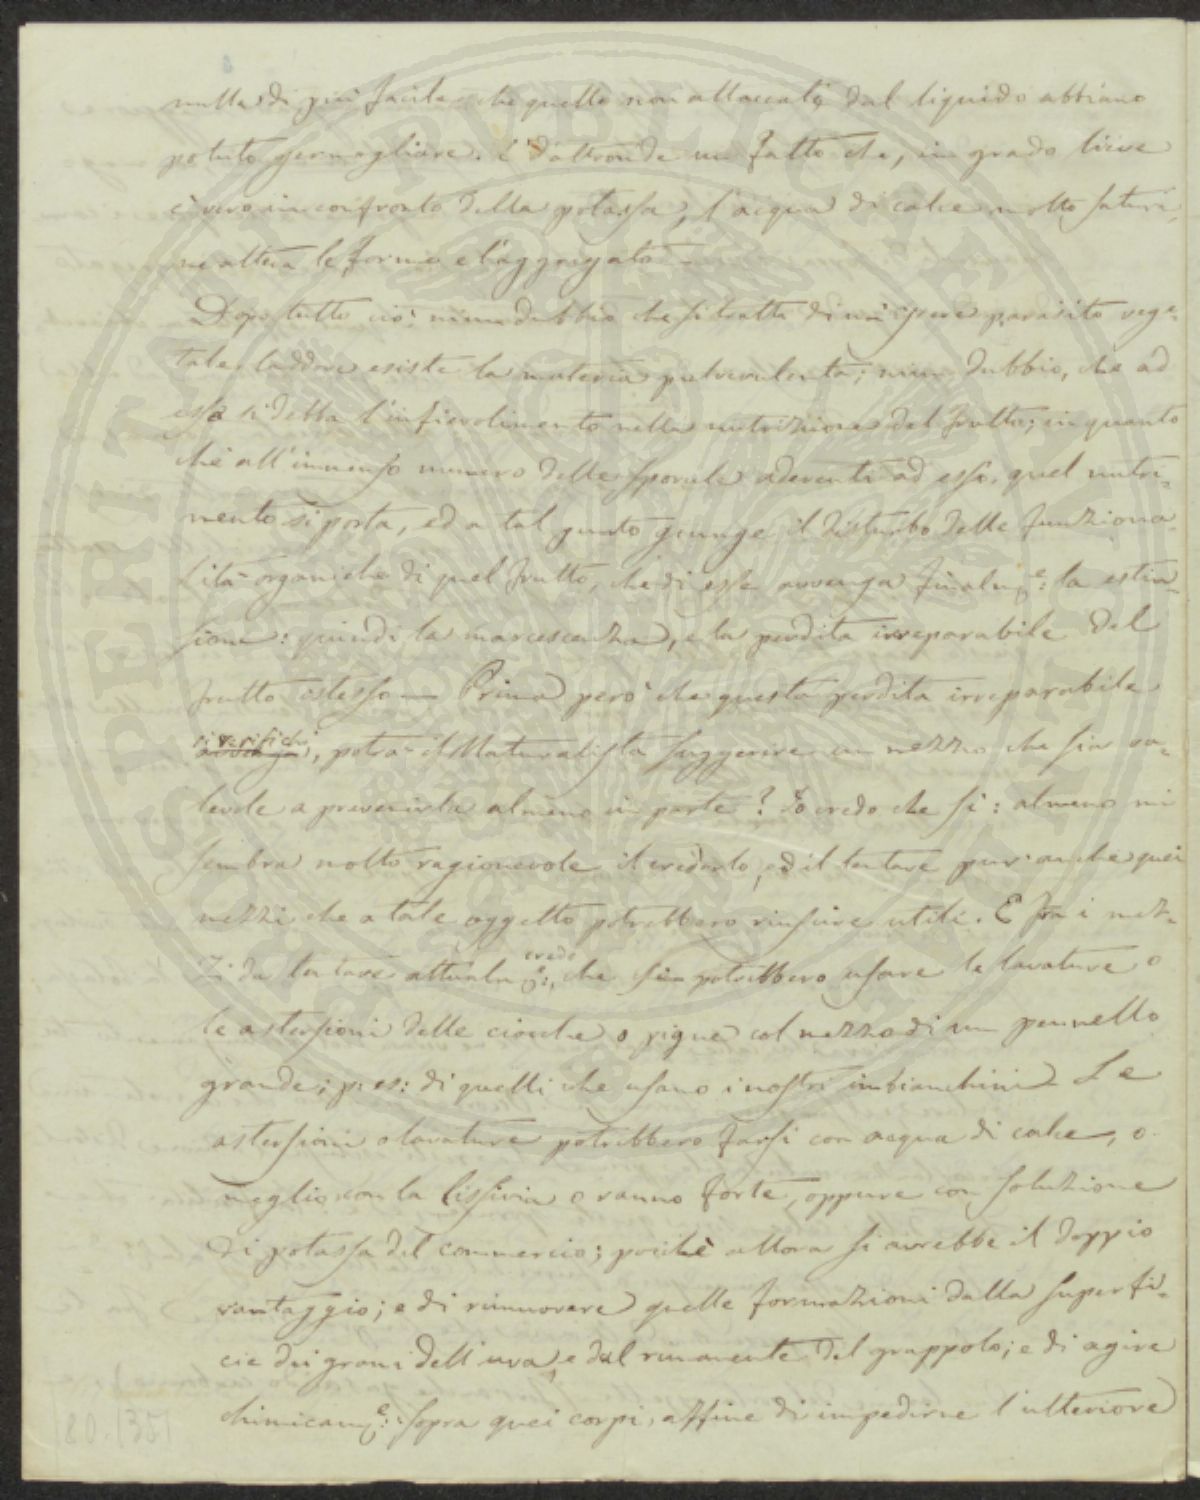 nulla di più facile che quelle non attaccate dal liquido abbiano
potuto germogliare. È d'altronde un fatto che, in grado lieve
è vero in confronto della potassa, l'acqua di calce molto satura
ne altera le forme e l'aggregato —
Dopo tutto ciò niun dubbio che si tratta di un essere parasito vege-
tale laddove esiste la materia pulverulenta; niun dubbio, che ad
essa si debba l'infievolimento nella nutrizione del frutto; in quanto
chè all'immenso numero delle sporule aderenti ad esso, quel nutri-
mento si porta, ed a tal punto giunge il disturbo delle funziona-
lità organiche di quel frutto, che di esse avvenga finalmᵉ: la estin-
sione: quindi la marcescenza, e la perdita irreparabile del
frutto stesso — Prima però che questa perdita irreparabile
si verifichi, potrà il Naturalista suggerire un mezzo che sia va-
levole a prevenirla almeno in parte? Io credo che sì: almeno mi
sembra molto ragionevole il crederlo, ed il tentare pur anche quei
mezzi che a tale oggetto potrebbero riuscire utili. E fra i mez-
zi da tentare attualmᵉ:, credo che si potrebbero usare le lavature o
le astersioni delle ciocche o pigne col mezzo di un pennello
grande; p. es: di quelli che usano i nostri imbianchini — Le
astersioni o lavature potrebbero farsi con acqua di calce, o
meglio con la lissivia o ranno forte, oppure con soluzione
di potassa del commercio; poichè allora si avrebbe il doppio
vantaggio; e di rimuovere quelle formazioni dalla superfi-
cie dei grani dell'uva, e dal rimanente del grappolo; e di agire
chimicamᵉ: sopra quei corpi, affine di impedirne l'ulteriore